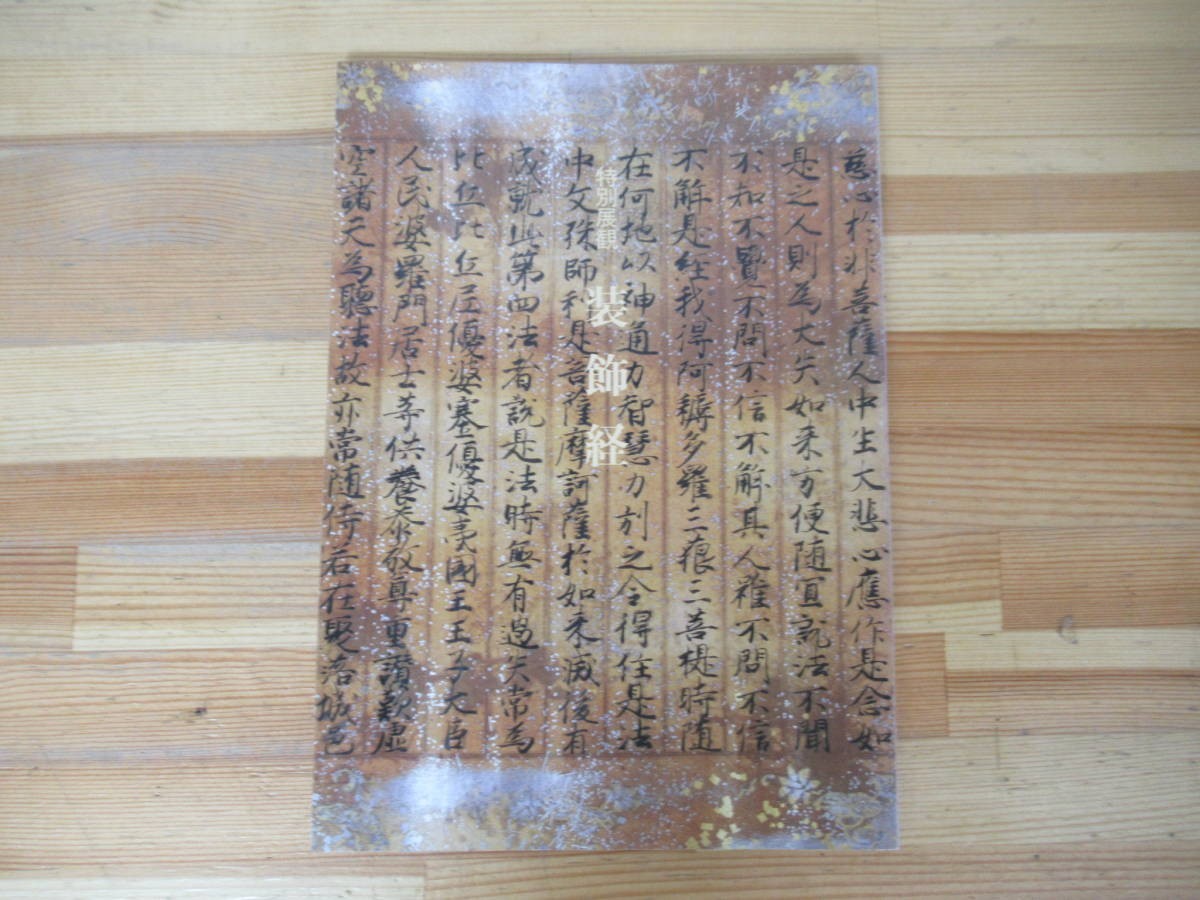 特別展観
装飾経
慈心於非菩薩人中生大悲心應作是念如
是之人則為大失如来方便随冝説法不聞
不知不覺不問不信不解其人雖不問不信
不解是経我得阿耨多羅三藐三菩提時随
在何地以神通力智慧力引之令得住是法
中文殊師利是菩薩摩訶薩於如来滅後有
成就此第四法者説是法時無有過失常為
比丘比丘尼優婆塞優婆夷國王王子大臣
人民婆羅門居士等供養恭敬尊重讃歎虚
空諸天為聽法故亦常随侍若在聚落城邑